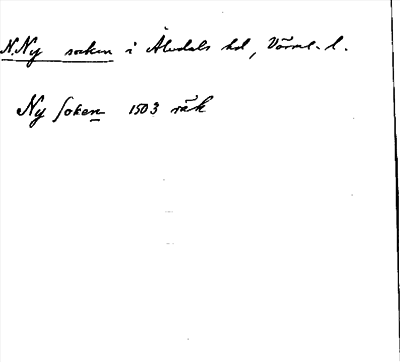 N. Ny socken i Älvdals hd, Värml. l.
Ny soken 1503 räk